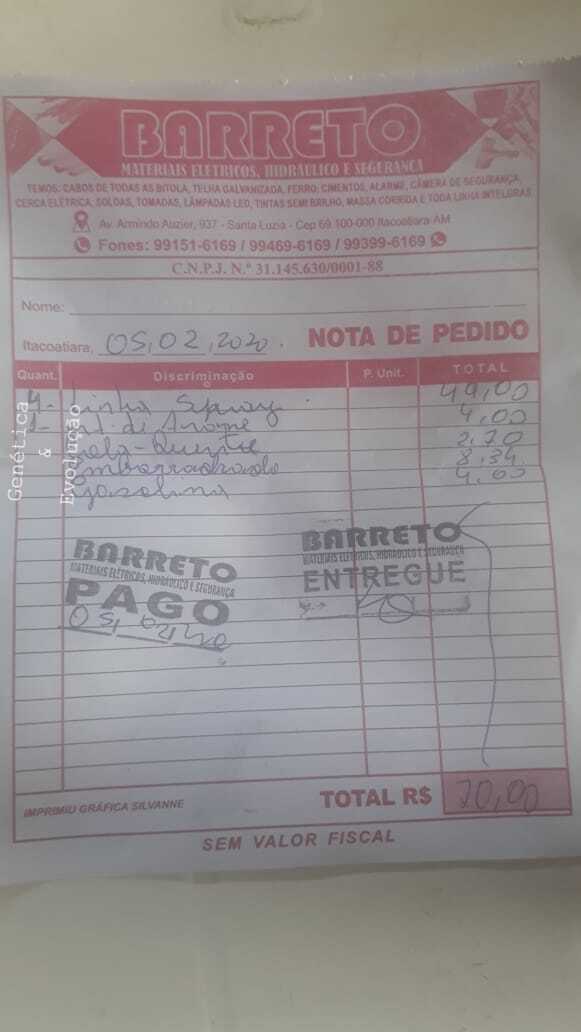 BARRETO
MATERIAIS ELÉTRICOS, HIDRAULICO E SEGURANÇA
TEMOS: CABOS DE TODAS AS BITOLA, TELHA GALVANIZADA, FERRO, CIMENTOS, ALARME, CÂMERA DE SEGURANÇA,
CERCA ELÉTRICA, SOLDAS, TOMADAS, LÂMPADAS LED, TINTAS SEMI BRILHO, MASSA CORRIDA E TODA LINHA
Av. Armindo Auzier, 937 - Santa Luzia - Cep 69.100-000 Itacoatiara-AM
Fones: 99151-6169 / 99469-6169 / 99399-6169
C.N.P.J. N.º 31.145.630/0001-88
Nome:
Itacoatiara, 05,02,2020. NOTA DE PEDIDO
Quant. Discriminação P. Unit. TOTAL
4- Spray 49,00
1- de 4,00
cola-Quente 2,70
8,34
Gasolina 4,00
Genética
&
Evolução
BARRETO
MATERIAIS ELÉTRICOS, HIDRÁULICO E SEGURANÇA
PAGO
BARRETO
MATERIAIS ELÉTRICOS, HIDRÁULICO E SEGURANÇA
ENTREGUE
IMPRIMIU GRÁFICA SILVANNE
TOTAL R$ 70,00
SEM VALOR FISCAL